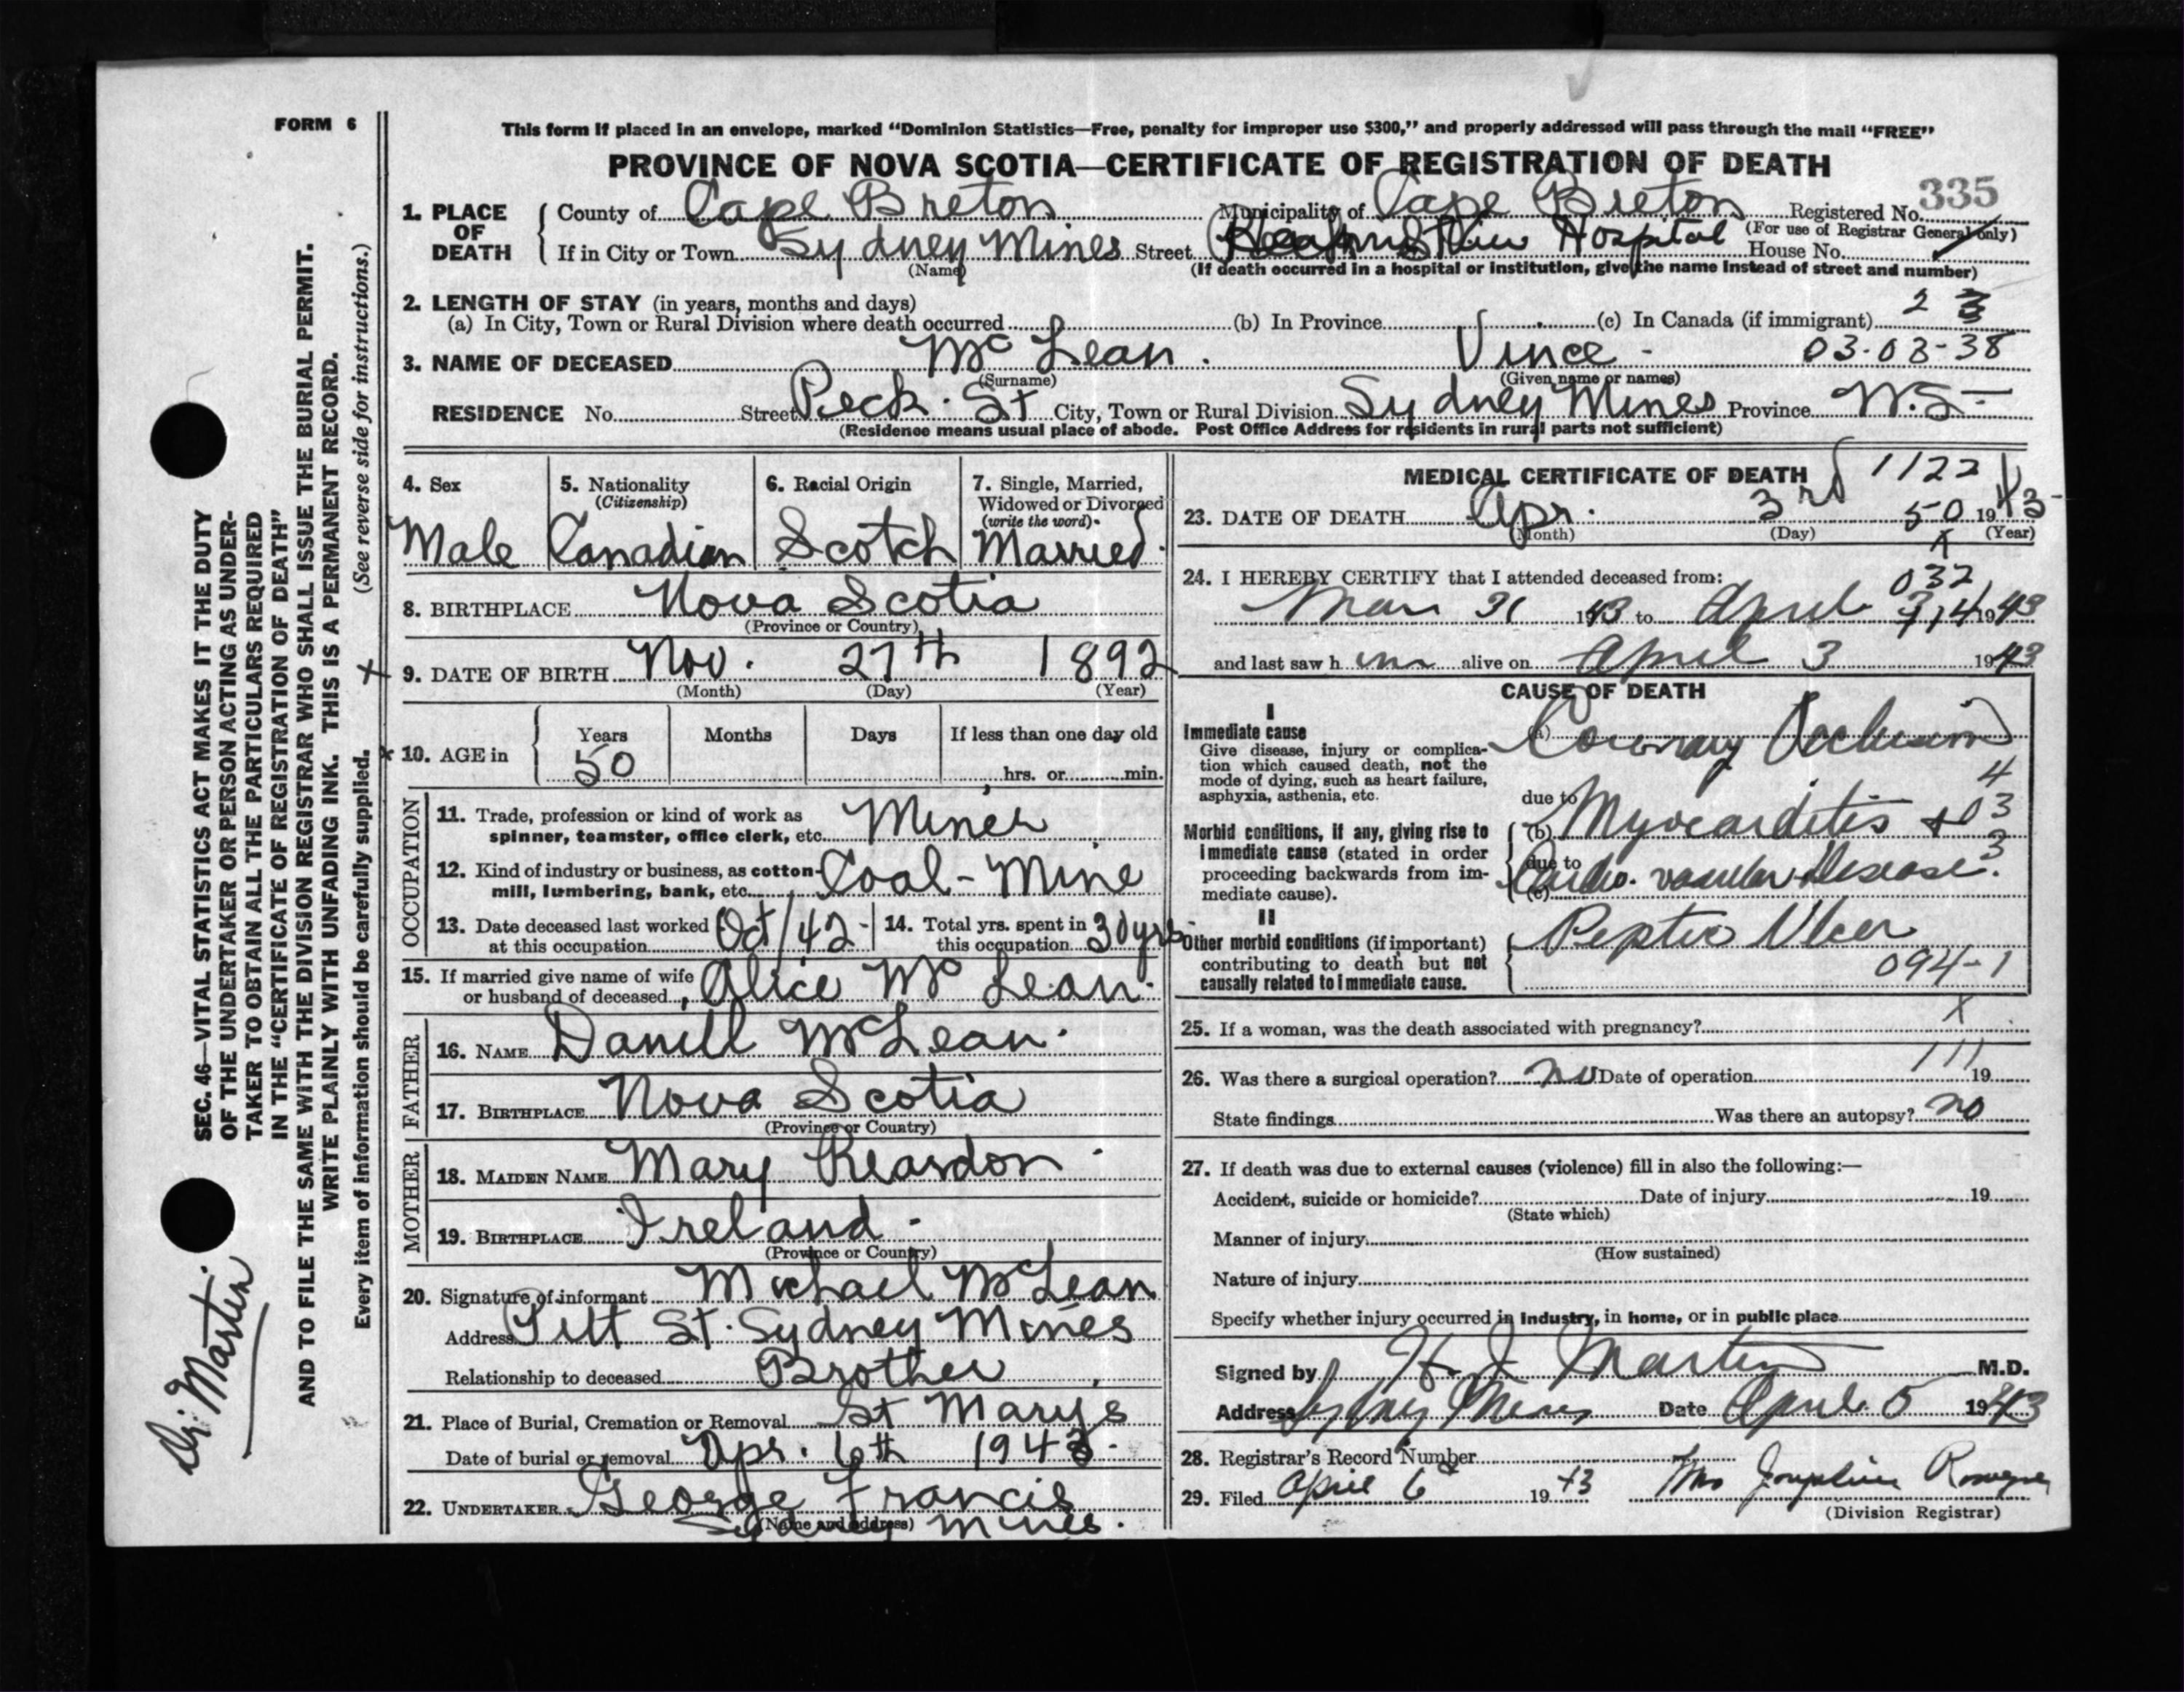 FORM 6
This form if placed in an envelope, marked "Dominion Statistics—Free, penalty for improper use $300," and properly addressed will pass through the mail "FREE"
PROVINCE OF NOVA SCOTIA—CERTIFICATE OF REGISTRATION OF DEATH
335
1. PLACE OF DEATH
County of Cape Breton Municipality of Cape Breton Registered No.
(For use of Registrar General only)
If in City or Town Sydney Mines Street Hospital House No.
(Name)
(If death occurred in a hospital or institution, give the name instead of street and number)
2. LENGTH OF STAY (in years, months and days)
(a) In City, Town or Rural Division where death occurred (b) In Province (c) In Canada (if immigrant) 2 3
3. NAME OF DECEASED McLean. Vince - 03-03-38
(Surname) (Given name or names)
RESIDENCE No. Street Peck. St City, Town or Rural Division Sydney Mines Province N.S-
(Residence means usual place of abode. Post Office Address for residents in rural parts not sufficient)
4. Sex
Male
5. Nationality
(Citizenship)
Canadian
6. Racial Origin
Scotch
7. Single, Married,
Widowed or Divorced
(write the word)
Married.
8. BIRTHPLACE Nova Scotia
(Province or Country)
9. DATE OF BIRTH Nov. 27th 1892
(Month) (Day) (Year)
10. AGE in Years Months Days If less than one day old
50 hrs. or min.
OCCUPATION
11. Trade, profession or kind of work as
spinner, teamster, office clerk, etc. Miner
12. Kind of industry or business, as cotton-
mill, lumbering, bank, etc. Coal-Mine
13. Date deceased last worked
at this occupation Oct/42-
14. Total yrs. spent in
this occupation 30yrs-
15. If married give name of wife
or husband of deceased Alice McLean.
FATHER
16. NAME Daniell McLean.
17. BIRTHPLACE Nova Scotia
(Province or Country)
MOTHER
18. MAIDEN NAME Mary Reardon
19. BIRTHPLACE Ireland.
(Province or Country)
20. Signature of informant Michael McLean
Address Pitt St. Sydney Mines
Relationship to deceased Brother
21. Place of Burial, Cremation or Removal St Marys
Date of burial or removal Apr. 6th 1943.
22. UNDERTAKER George Francis
(Name and address)
Sydney Mines.
MEDICAL CERTIFICATE OF DEATH 1122
23. DATE OF DEATH Apr. 3rd 50 1943
(Month) (Day) (Year)
X
24. I HEREBY CERTIFY that I attended deceased from:
032
Mar 31 1943 to April 1943
and last saw h im alive on April 3 1943
CAUSE OF DEATH
I
Immediate cause
Give disease, injury or complica-
tion which caused death, not the
mode of dying, such as heart failure,
asphyxia, asthenia, etc.
(a) Coronary Occlusion
4
due to
Morbid conditions, if any, giving rise to
immediate cause (stated in order
proceeding backwards from im-
mediate cause).
(b) Myocarditis + 03
due to
3
(c) Cardio-vascular Disease.
II
Other morbid conditions (if important)
contributing to death but not
causally related to immediate cause.
Peptic Ulcer
094-1
25. If a woman, was the death associated with pregnancy? X
111
26. Was there a surgical operation? no Date of operation 19
State findings Was there an autopsy? no
27. If death was due to external causes (violence) fill in also the following:—
Accident, suicide or homicide? Date of injury 19
(State which)
Manner of injury
(How sustained)
Nature of injury
Specify whether injury occurred in industry, in home, or in public place
Signed by H. J. Martin M.D.
Address Sydney Mines Date April 5 1943
28. Registrar's Record Number
29. Filed April 6 1943 Mrs Josephine
(Division Registrar)
SEC. 46—VITAL STATISTICS ACT MAKES IT THE DUTY
OF THE UNDERTAKER OR PERSON ACTING AS UNDER-
TAKER TO OBTAIN ALL THE PARTICULARS REQUIRED
IN THE "CERTIFICATE OF REGISTRATION OF DEATH"
AND TO FILE THE SAME WITH THE DIVISION REGISTRAR WHO SHALL ISSUE THE BURIAL PERMIT.
WRITE PLAINLY WITH UNFADING INK. THIS IS A PERMANENT RECORD.
Every item of information should be carefully supplied. (See reverse side for instructions.)
Dr. Martin